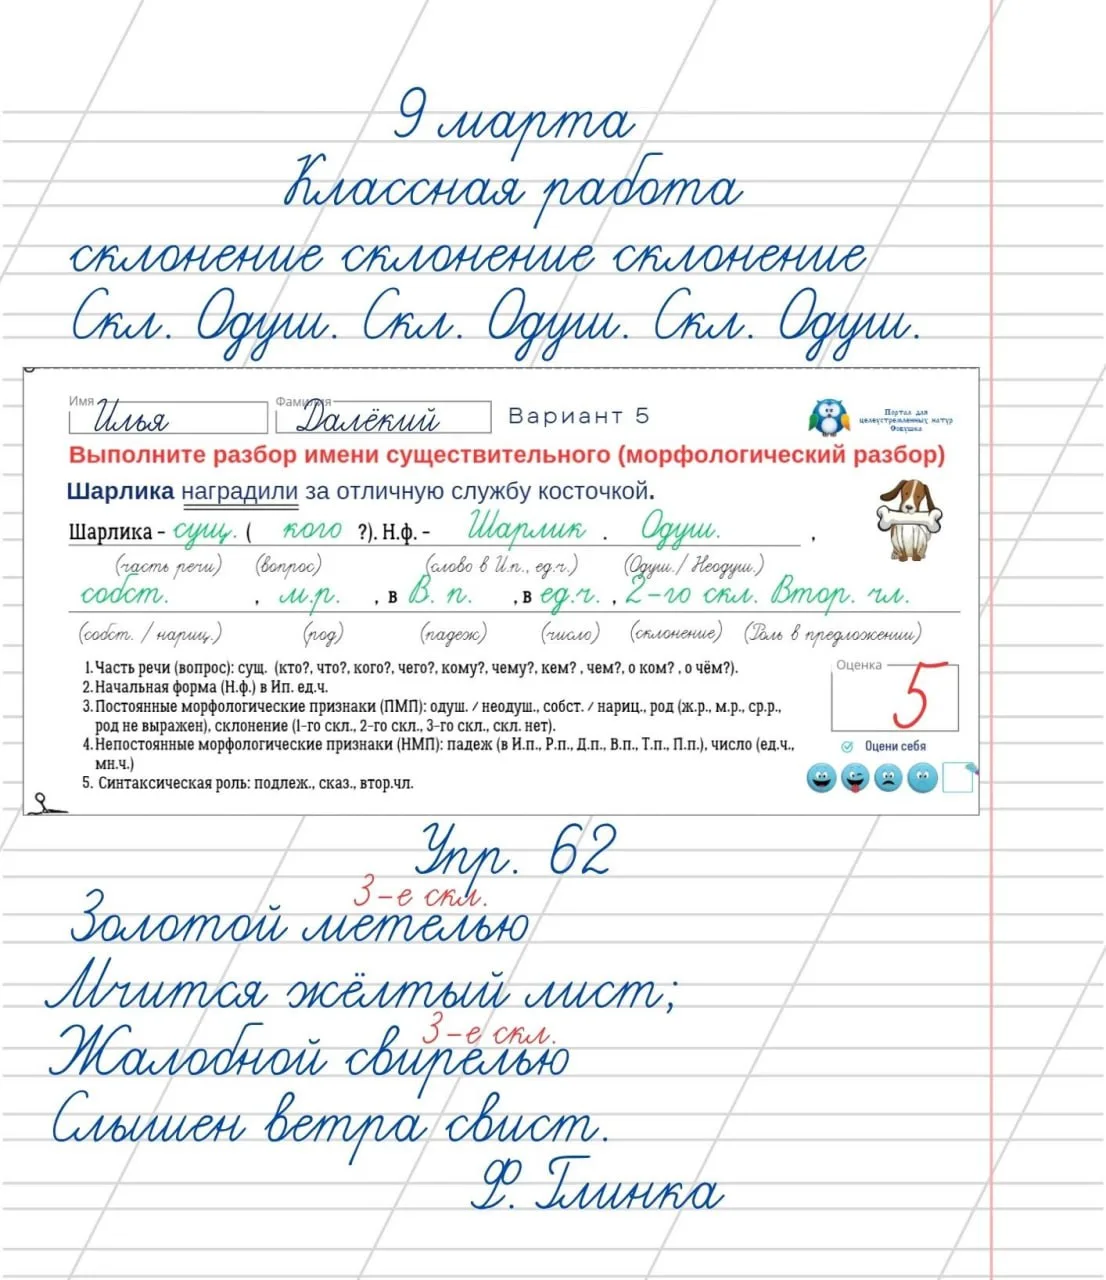 9 марта
Классная работа
склонение склонение склонение
Скл. Одуш. Скл. Одуш. Скл. Одуш.
Имя Илья Фамилия Далёкий Вариант 5
Портал для
целеустремленных натур
Совушка
Выполните разбор имени существительного (морфологический разбор)
Шарлика наградили за отличную службу косточкой.
Шарлика – сущ. ( кого ?). Н.ф. – Шарлик . Одуш. ,
(часть речи) (вопрос) (слово в И.п., ед.ч.) (Одуш./ Неодуш.)
собст. , м.р. , в В. п. , в ед.ч. , 2-го скл. Втор. чл.
(собст. / нариц.) (род) (падеж) (число) (склонение) (Роль в предложении)
1. Часть речи (вопрос): сущ. (кто?, что?, кого?, чего?, кому?, чему?, кем? , чем?, о ком? , о чём?).
2. Начальная форма (Н.ф.) в Ип. ед.ч.
3. Постоянные морфологические признаки (ПМП): одуш. / неодуш., собст. / нариц., род (ж.р., м.р., ср.р.,
род не выражен), склонение (1-го скл., 2-го скл., 3-го скл., скл. нет).
4. Непостоянные морфологические признаки (НМП): падеж (в И.п., Р.п., Д.п., В.п., Т.п., П.п.), число (ед.ч.,
мн.ч.)
5. Синтаксическая роль: подлеж., сказ., втор.чл.
Оценка 5
Оцени себя
Упр. 62
3-е скл.
Золотой метелью
Мчится жёлтый лист;
3-е скл.
Жалобной свирелью
Слышен ветра свист.
Ф. Глинка